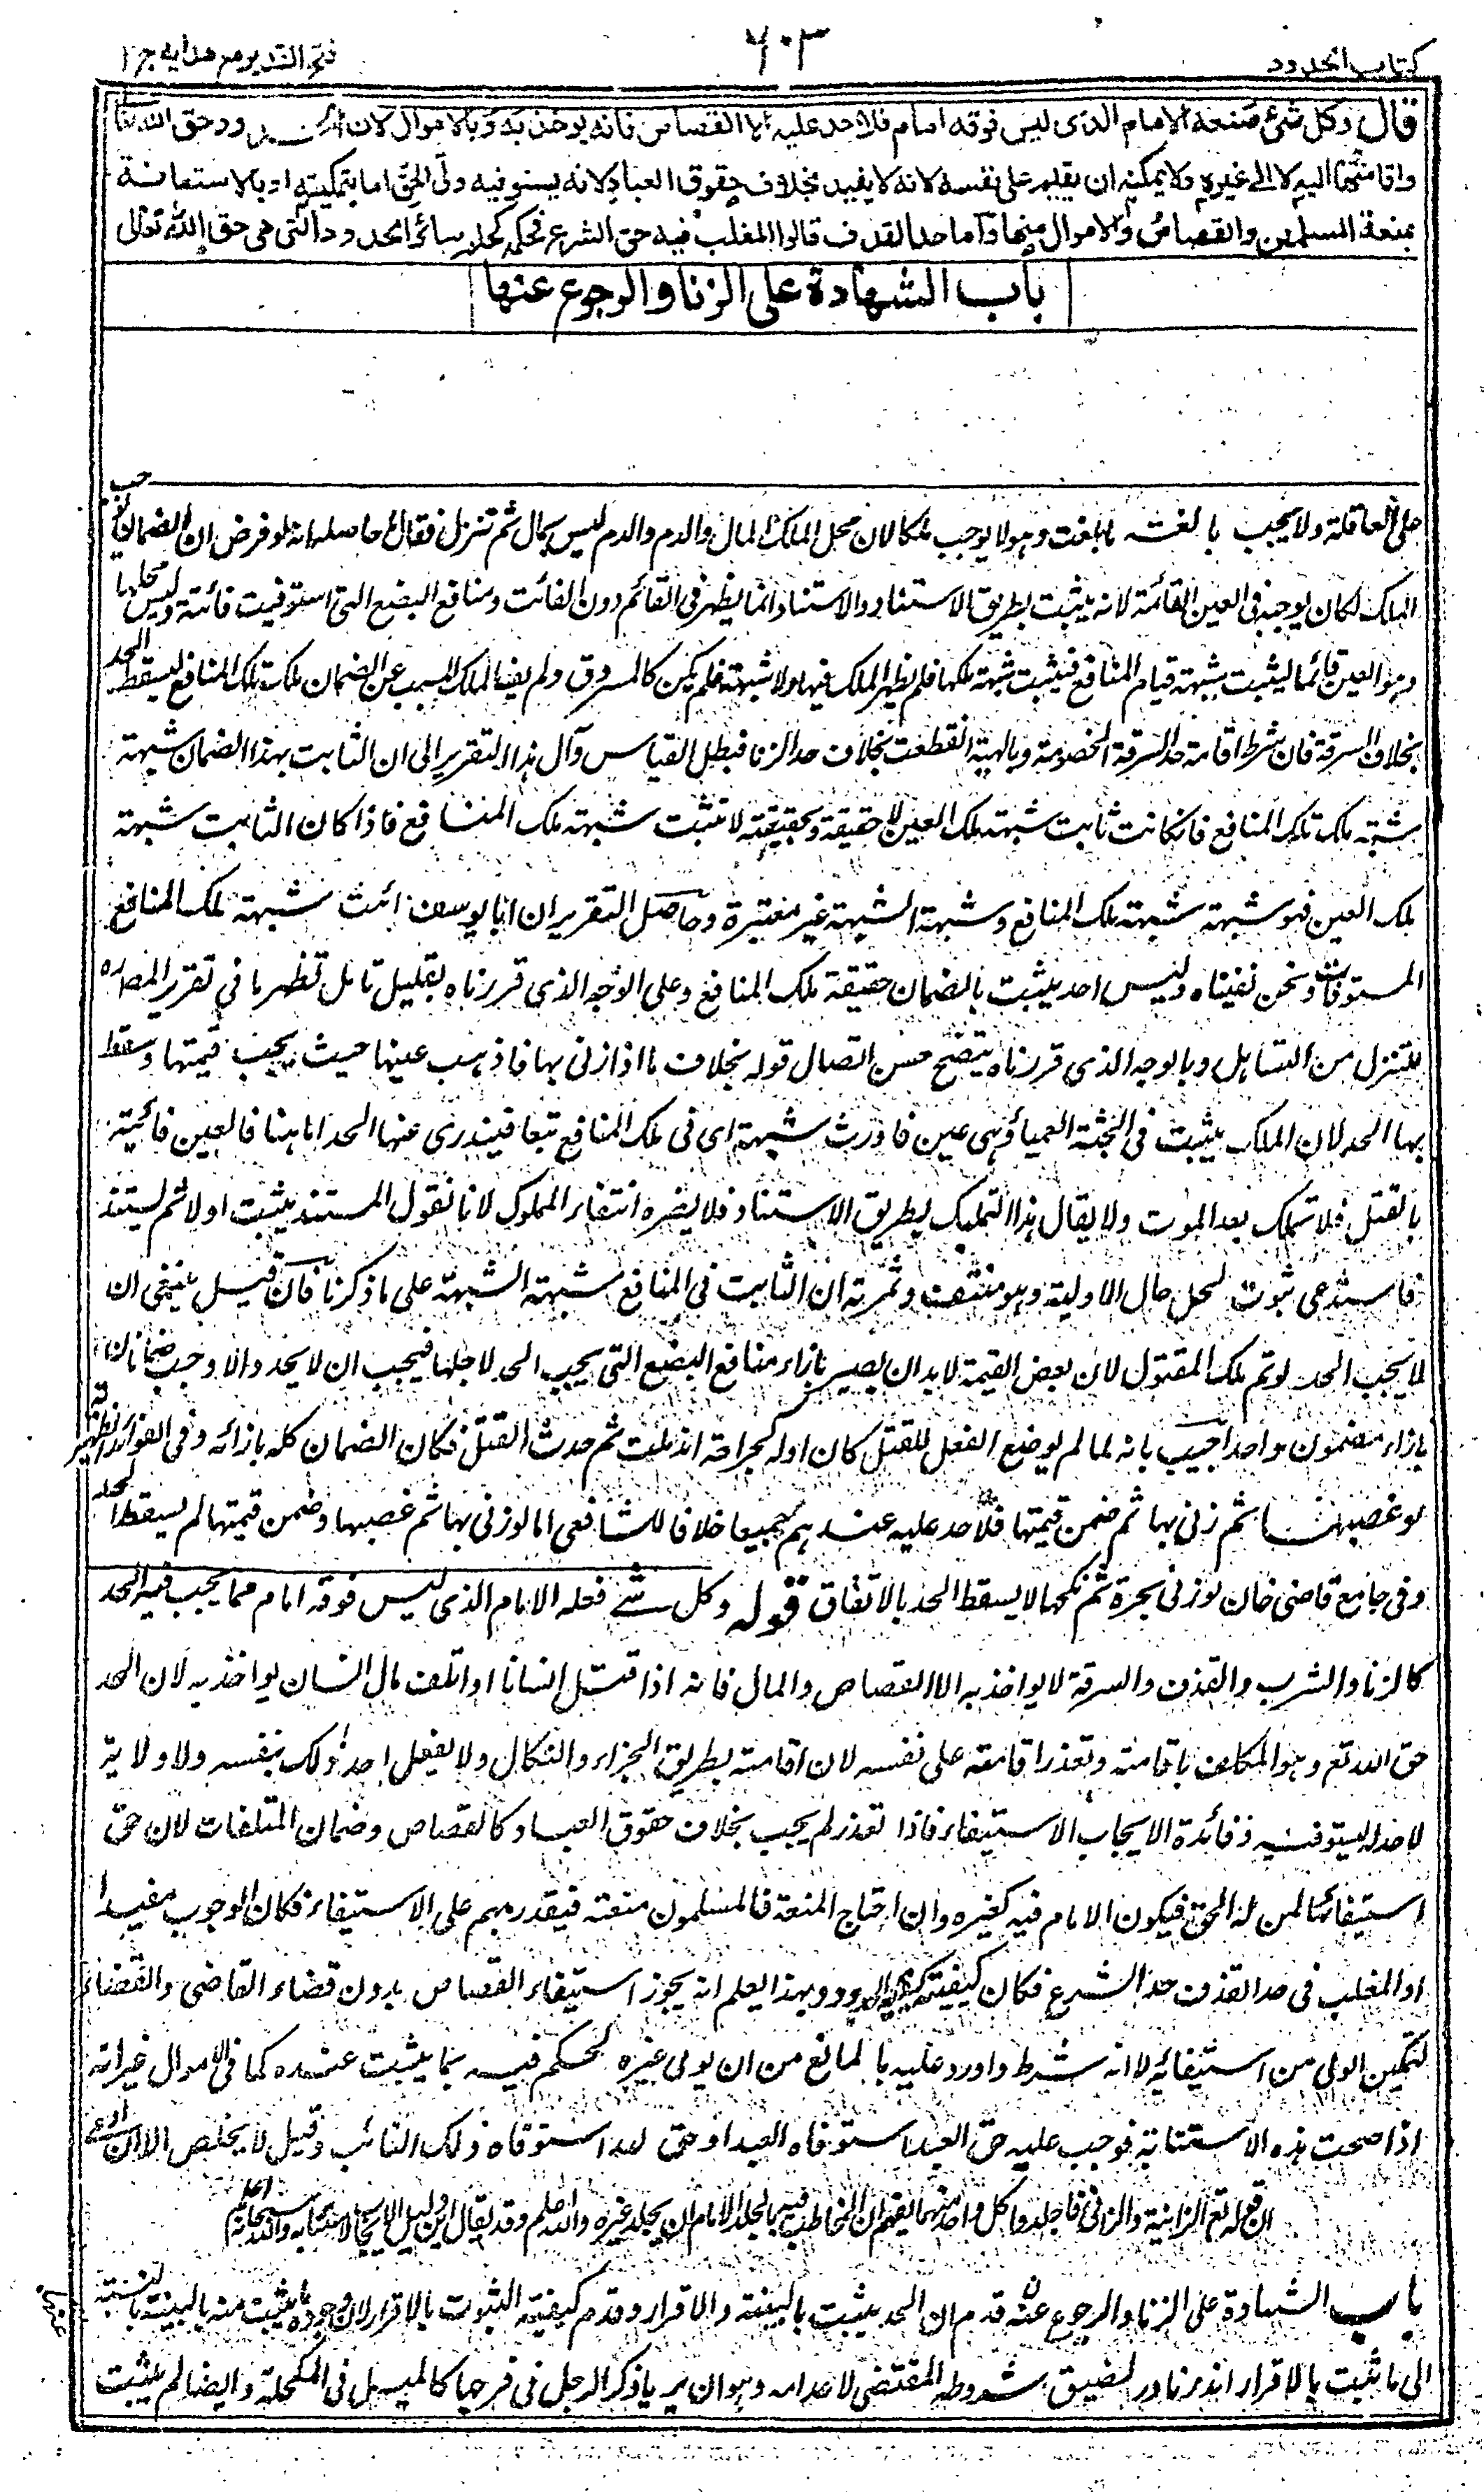 كتاب الحدود
٦٠٣
فتح القدير مع هدايه ج ٢
قال وكل شئ صنعه الامام الذى ليس فوقه امام فلا حد عليه الا القصاص فانه يوخذ به وبالاموال لان الحدود حق الله تعا
واقامتها اليه لا الى غيره ولا يمكنه ان يقيم على نفسه لانه لا يفيد بخلاف حقوق العباد لانه يستوفيه ولى الحق اما بتمكينه او بالاستعانة
بمنعة المسلمين والقصاص والاموال منها واما حد القذف قالوا المغلب فيه حق الشرع فحكمه كحكم سائر الحدود التى هى حق الله تعالى
باب الشهادة على الزنا والرجوع عنها
على العاقلة ولا يجب بالغة ما بلغت وهو لا يوجب ملكا لان محل الملك المال والدم والدم ليس بمال ثم تنزل فقال ما حاصله انه لو فرض ان الضمان يوجب
الملك لكان يوجبه فى العين القائمة لانه يثبت بطريق الاستناد والاستناد انما يظهر فى القائم دون الفائت ومنافع البضع التى استوفيت فائتة وليس محلها
وهو العين قائما ليثبت شبهة قيام المنافع فيثبت شبهة ملكها فلم يظهر الملك فيها ولا شبهة فلم يكن كالمسروق ولم يفد الملك المسبب عن الضمان ملك تلك المنافع ليسقط الحد
بخلاف السرقة فان شرط اقامة حد السرقة الخصومة وبالهبة انقطعت بخلاف حد الزنا فبطل القياس وآل هذا التقرير الى ان الثابت بهذا الضمان شبهة
شبهة ملك تلك المنافع فانكانت ثابت شبهة ملك العين لا حقيقة وبحقيقته لا تثبت شبهة ملك المنافع فاذا كان الثابت شبهة
ملك العين فهو شبهة شبهة ملك المنافع وشبهة الشبهة غير معتبرة وحاصل التقرير ان ابا يوسف اثبت شبهة ملك المنافع
المستوفاة ونحن نفيناه وليس احد يثبت بالضمان حقيقة ملك المنافع وعلى الوجه الذى قررناه بقليل تامل تظهر ما فى تقرير المص اره
للتنزل من التساهل وبالوجه الذى قررناه يتضح حسن اتصال قوله بخلاف ما اذا زنى بها فاذهب عينها حيث يجب قيمتها وسقط
بها الحد لان الملك يثبت فى الجثة العمياء وهى عين فاورث شبهة اى فى ملك المنافع تبعا فيندرئ عنها الحد اما ههنا فالعين فائتة
بالقتل فلا تملك بعد الموت ولا يقال هذا التمليك بطريق الاستناد فلا يضره انتفاء المملوك لانا نقول المستند يثبت اولا ثم يستند
فاستدعى ثبوت المحل حال الاولية وهو منتف وثمرته ان الثابت فى المنافع شبهة الشبهة على ما ذكرنا فان قيل ينبغى ان
لا يجب الحد لو تم ملك المقتول لان بعض القيمة لا بد ان يصير بازاء منافع البضع التى يجب الحد لاجلها فيجب ان لا يحد والا وجب ضمانان
بازاء مضمون واحد اجيب بانه لما لم يوضع الفعل للقتل كان اوله كجراحة اندملت ثم حدث القتل فكان الضمان كله بازائه وفى الفوائد الظهيرية
لو غصبها ثم زنى بها ثم ضمن قيمتها فلا حد عليه عندهم جميعا خلافا للشافعى اما لو زنى بها ثم غصبها وضمن قيمتها لم يسقط الحد
وفى جامع قاضى خان لو زنى بحرة ثم نكحها لا يسقط الحد بالاتفاق قوله وكل شئ فعله الامام الذى ليس فوقه امام مما يجب فيه الحد
كالزنا والشرب والقذف والسرقة لا يواخذ به الا القصاص والمال فانه اذا قتل انسانا او اتلف مال انسان يواخذ به لان الحد
حق الله تع وهو المكلف باقامته وتعذر اقامته على نفسه لان اقامته بطريق الجزاء والنكال ولا يفعل احد ذلك بنفسه ولا ولاية
لاحد ليستوفيه وفائدة الايجاب الاستيفاء فاذا تعذر لم يجب بخلاف حقوق العباد كالقصاص وضمان المتلفات لان حق
استيفائها لمن له الحق فيكون الامام فيه كغيره وان احتاج المنعة فالمسلمون منعته فيقدر بهم على الاستيفاء فكان الوجوب مفيدا
او المغلب فى حد القذف حد الشرع فكان كبقية الحدود وبهذا يعلم انه يجوز استيفاء القصاص بدون قضاء القاضى والقضاء
لتمكين الولى من استيفائه لا انه شرط واورد عليه بالمانع من ان يولى غيره الحكم فيه بما يثبت عنده كما فى الاموال غير انه
اذا صحت هذه الاستنابة فوجب عليه حق العبد استوفاه العبد او حق لله استوفاه ذلك النائب وقيل لا يخلص الا ان ادعى
ان قوله تع الزانية والزانى فاجلدوا كل واحد منهما يفهم ان المخاطب فيه بالجلد الامام ان يجلد غيره والله اعلم وقد يقال اين دليل الايجاب الاستنابة والله سبحانه اعلم
باب الشهادة على الزنا والرجوع عنه قدم ان الحد يثبت بالبينة والاقرار وقدم كيفية الثبوت بالاقرار لان وجوده ما يثبت منه بالبينة بالنسبة
الى ما ثبت بالاقرار اندر نادر لضيق شروطه المقتضى لاعدامه وهو ان يريا ذكر الرجل فى فرجها كالميل فى المكحلة وايضا لم يثبت
عنها